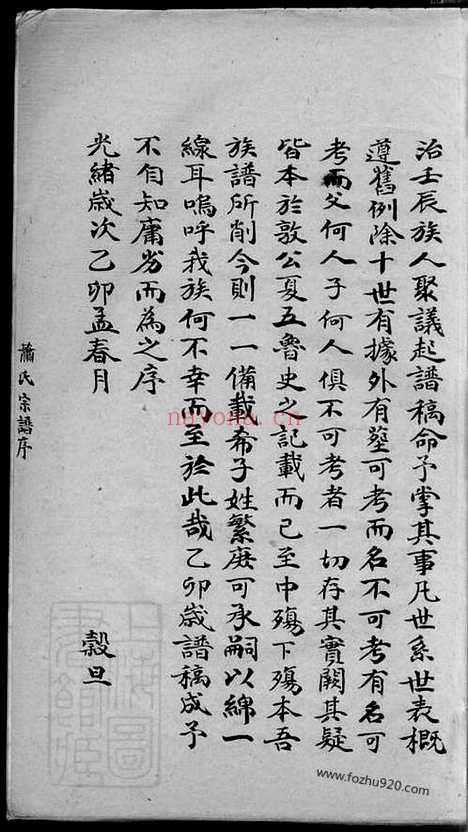 治壬辰族人聚議起譜稿命予掌其事凡世系世表概
遵舊例除十世有據外有塋可考而名不可考有名可
考而父何人子何人俱不可考者一切存其實闕其疑
皆本於敦公夏五魯史之記載而已至中殤下殤本吾
族譜所削今則一一備載希子姓繁庶可承嗣以綿一
線耳嗚呼我族何不幸而至於此哉乙卯歲譜稿成予
不自知庸劣而為之序
光緒歲次乙卯孟春月
穀旦
蕭氏宗譜序
nayona.cn
www.fozhu920.com